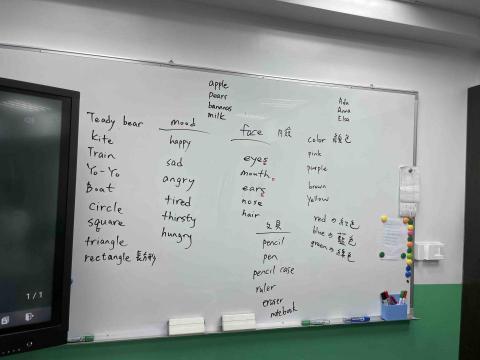 apple
pears
bananas
milk
Ada
Anna
Elsa
Teady bear
kite
Train
Yo-Yo
Boat
circle
square
triangle
rectangle 長方形
mood
happy
sad
angry
tired
thirsty
hungry
face
eyes
mouth
ears
nose
hair
文具
pencil
pen
pencil case
ruler
eraser
notebook
color 顏色
pink
purple
brown
Yellow
red 紅色
blue 藍色
green 綠色
1/1